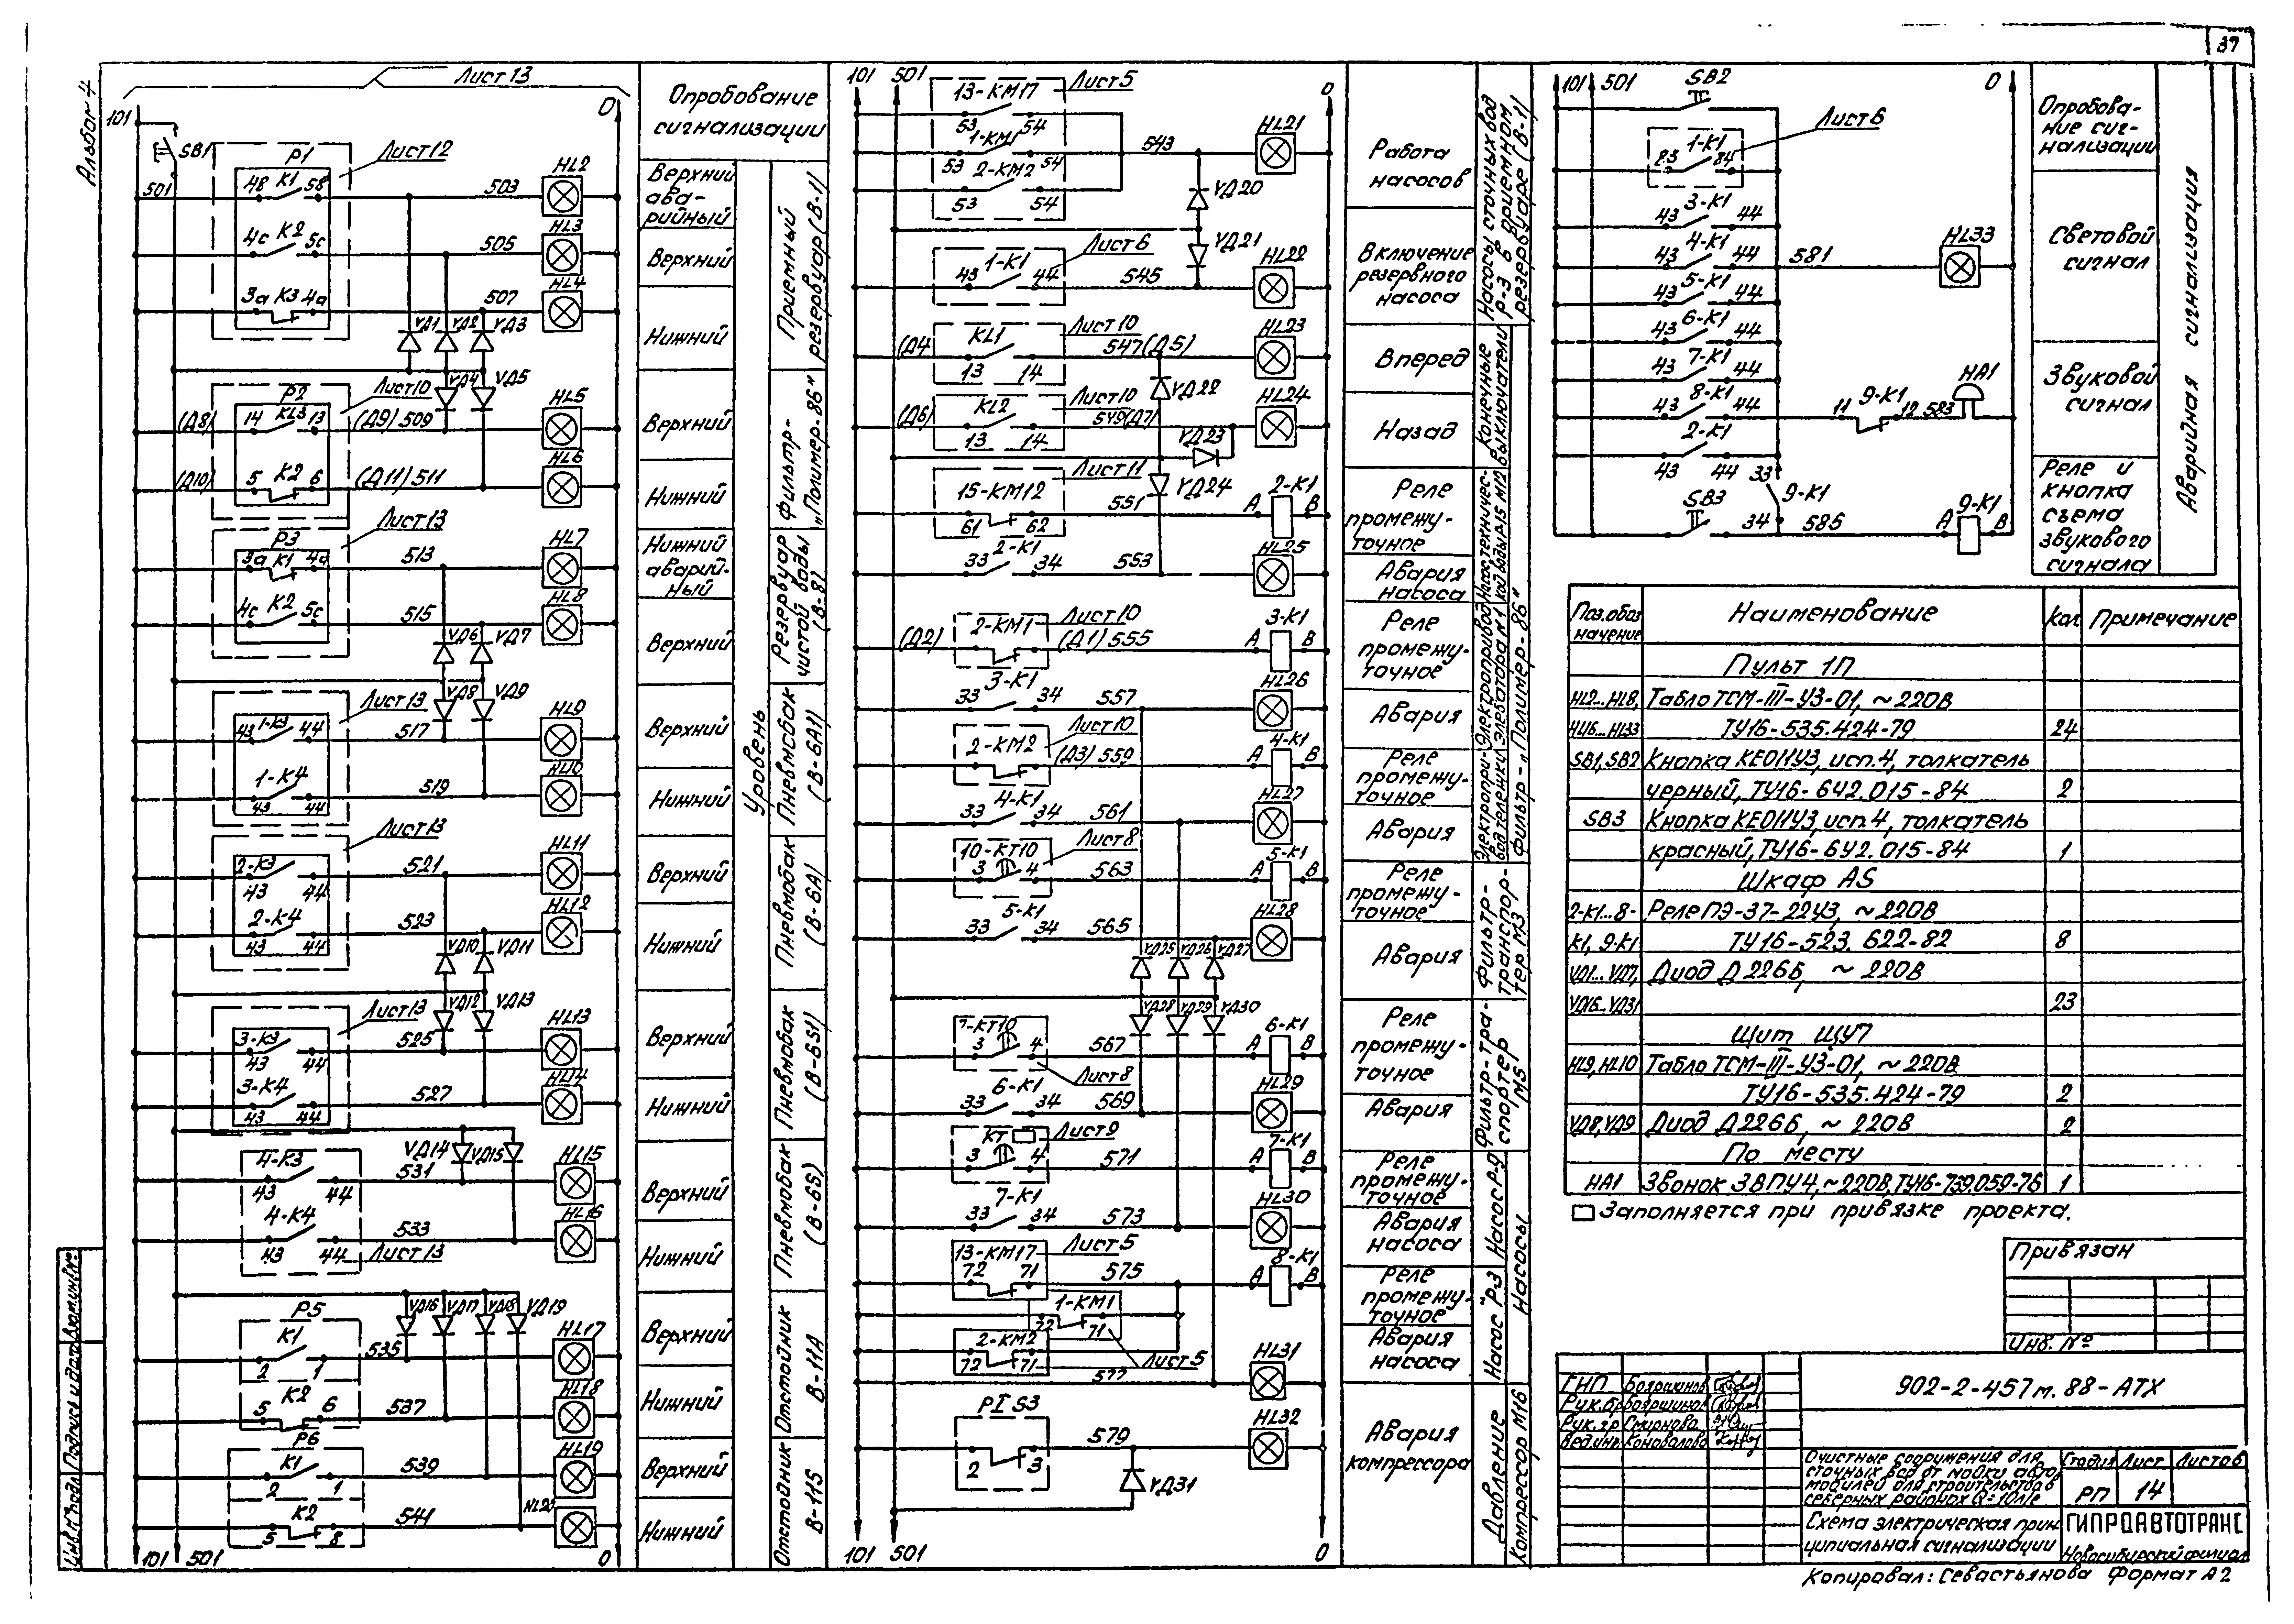 37
Альбом 4
Лист 13
101
0
SB1
501
P1
Лист 12
48 K1 58
503
HL2
4c K2 5c
505
HL3
3a K3 4a
507
HL4
VД1 VД2 VД3
P2
Лист 10
VД4 VД5
(Д8) 14 KL3 13 (Д9) 509
HL5
(Д10) 5 K2 6 (Д11) 511
HL6
P3
Лист 13
3a K1 4a
513
HL7
4c K2 5c
515
HL8
VД6 VД7
Лист 13
VД8 VД9
43 1-K3 44
517
HL9
1-K4
43 44
519
HL10
Лист 13
2-K3
43 44
521
HL11
2-K4
43 44
523
HL12
VД10 VД11
Лист 13
VД12 VД13
3-K3
43 44
525
HL13
3-K4
43 44
527
HL14
VД14 VД15
4-K3
43 44
531
HL15
4-K4
43 44
533
HL16
Лист 13
P5
VД16 VД17 VД18 VД19
K1
2 1
535
HL17
K2
5 6
537
HL18
P6
K1
2 1
539
HL19
K2
5 8
541
HL20
101 501 0
Опробование
сигнализации
Верхний
ава-
рийный
Верхний
Нижний
Верхний
Нижний
Нижний
аварий-
ный
Верхний
Верхний
Нижний
Верхний
Нижний
Верхний
Нижний
Верхний
Нижний
Верхний
Нижний
Верхний
Нижний
Уровень
Приемный
резервуар (В-1)
Фильтр-
„Полимер-86"
Резервуар
чистой воды
(В-8)
Пневмобак
(В-6А1)
Пневмобак
(В-6А)
Пневмобак
(В-6S1)
Пневмобак
(В-6S)
Отстойник
В-11А
Отстойник
В-11S
101 501 0
13-KM17
Лист 5
53 54
1-KM1
53 54
543
HL21
2-KM2
53 54
VД20
VД21
Лист 6
1-K1
43 44
545
HL22
(Д4 KL1
Лист 10
13 14
547 (Д5)
HL23
VД22
(Д6) KL2
Лист 10
13 14
549 (Д7)
HL24
VД23
Лист 11
VД24
15-KM12
61 62
551
A 2-K1 B
2-K1
33 34
553
HL25
(Д2) 2-KM1
Лист 10
(Д1) 555
A 3-K1 B
3-K1
33 34
557
HL26
Лист 10
2-KM2
(Д3) 559
A 4-K1 B
4-K1
33 34
561
HL27
10-KT10
Лист 8
3 4
563
A 5-K1 B
5-K1
33 34
565
HL28
VД25 VД26 VД27
VД28 VД29 VД30
7-KT10
3 4
567
A 6-K1 B
Лист 8
6-K1
33 34
569
HL29
KT
Лист 9
3 4
571
A 7-K1 B
7-K1
33 34
573
HL30
13-KM17
Лист 5
72 71
575
A 8-K1 B
1-KM1
72 71
2-KM2
72 71
Лист 5
577
HL31
PI S3
2 3
579
HL32
VД31
101 501 0
Работа
насосов
Включение
резервного
насоса
Вперед
Назад
Реле
промежу-
точное
Авария
насоса
Реле
промежу-
точное
Авария
Реле
промежу-
точное
Авария
Реле
промежу-
точное
Авария
Реле
промежу-
точное
Авария
Реле
промежу-
точное
Авария
насоса
Реле
промежу-
точное
Авария
насоса
Авария
компрессора
Насосы сточных вод
Р-3 в приемном
резервуаре (В-1)
Конечные
выключатели
Электропривод
элеватора М1
Фильтр-„Полимер-86"
Фильтр-
транспор-
тер М3
Фильтр-тра-
спортер
М5
Насос Р-9
Насос Р3
Насосы
Давление
Компрессор М16
101 501 0
SB2
Лист 6
1-K1
83 84
3-K1
43 44
4-K1
43 44
581
HL33
5-K1
43 44
6-K1
43 44
7-K1
43 44
8-K1
43 44
9-K1
11 12 583
HA1
2-K1
43 44
33
9-K1
34
SB3
585
A 9-K1 B
Опробова-
ние сиг-
нализации
Световой
сигнал
Звуковой
сигнал
Реле и
кнопка
съема
звукового
сигнала
Аварийная сигнализация
Поз.обоз
начение
Наименование
Кол
Примечание
Пульт 1П
HL2...HL8, Табло ТСМ-III-У3-01, ~220В
HL16...HL33 ТУ16-535.424-79 24
SB1, SB2 Кнопка КЕ011У3, исп.4, толкатель
черный, ТУ16-642.015-84 2
SB3 Кнопка КЕ011У3, исп.4, толкатель
красный, ТУ16-642.015-84 1
Шкаф AS
2-K1...8- Реле ПЭ-37-22У3, ~220В
K1, 9-K1 ТУ16-523.622-82 8
VД1...VД7, Диод Д226Б, ~220В
VД16...VД31 23
Щит ЩУ7
HL9, HL10 Табло ТСМ-III-У3-01, ~220В
ТУ16-535.424-79 2
VД8, VД9 Диод Д226Б, ~220В 2
По месту
HA1 Звонок ЗВПУ4, ~220В, ТУ16-739.059-76 1
Заполняется при привязке проекта.
Привязан
Инв. №
ГНП Бояршинов
Рук.бр Бояршинов
Рук.гр Смирнова
Вед.инж Коновалова
902-2-457м.88-АТХ
Очистные сооружения для
сточных вод от мойки авто
мобилей для строительства в
северных районах Q=10л/с
Стадия Лист Листов
РП 14
Схема электрическая прин
ципиальная сигнализации
ГИПРОАВТОТРАНС
Новосибирский филиал
Копировал: Севастьянова Формат А2
Инв.№ подл. Подпись и дата Взам.инв.№